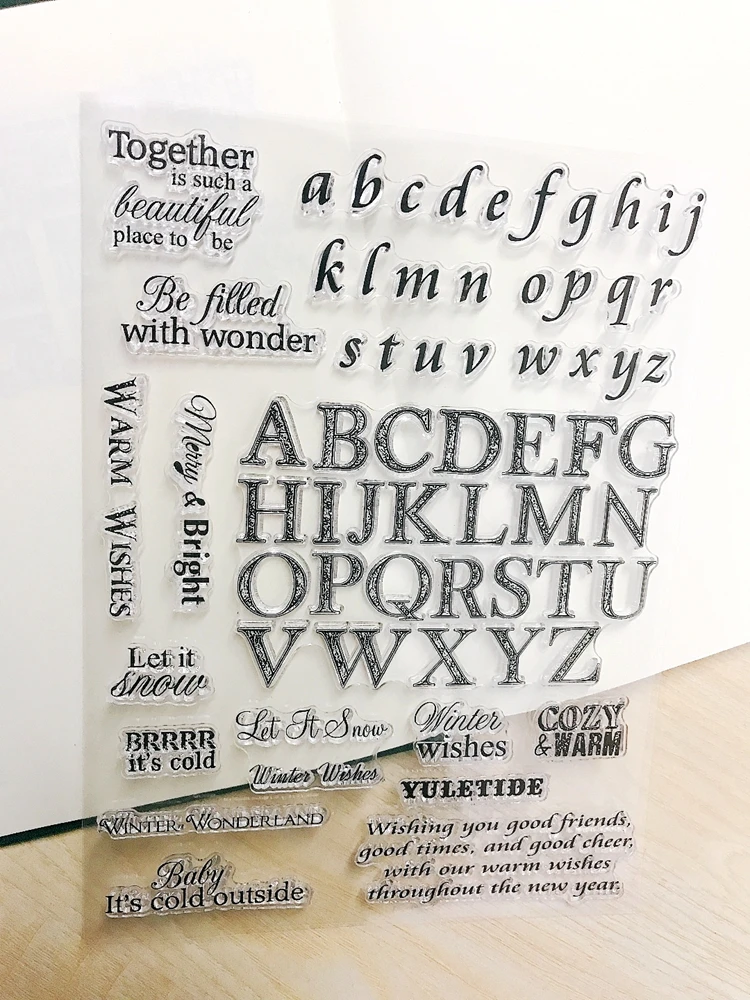 Together
is such a
beautiful
place to be
a b c d e f g h i j
k l m n o p q r
s t u v w x y z
Be filled
with wonder
WARM WISHES
Merry & Bright
A B C D E F G
H I J K L M N
O P Q R S T U
V W X Y Z
Let it
snow
BRRRR
it's cold
Let It Snow
Winter Wishes
Winter
wishes
COZY
& WARM
YULETIDE
WINTER WONDERLAND
Wishing you good friends,
good times, and good cheer,
with our warm wishes
throughout the new year.
Baby
It's cold outside